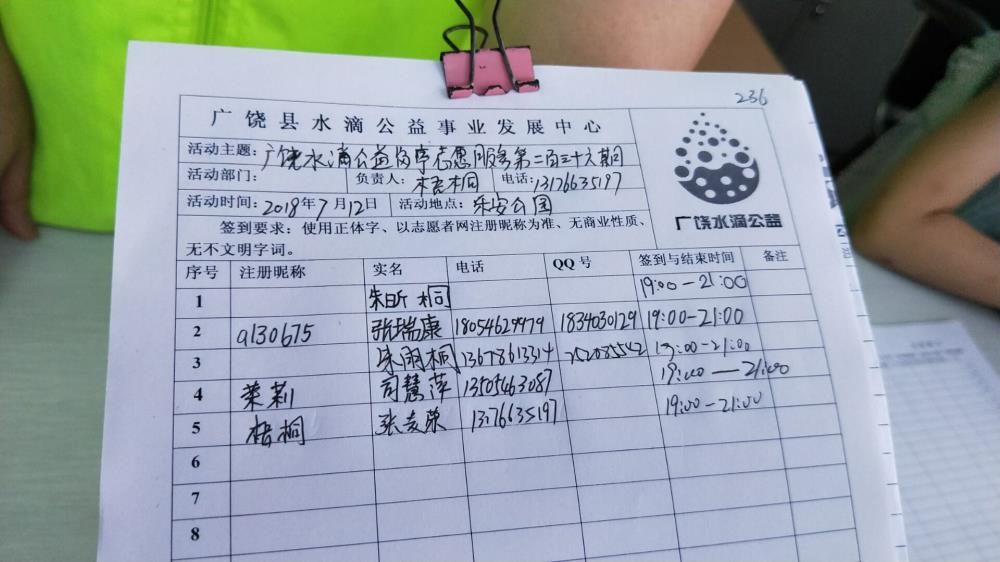 236
广饶县水滴公益事业发展中心
活动主题：广饶水滴公益岗亭志愿服务第二百三十六期
活动部门： 负责人：梧桐 电话：13176635197
活动时间：2018年7月12日 活动地点：乐安公园
签到要求：使用正体字、以志愿者网注册昵称为准、无商业性质、
无不文明字词。
广饶水滴公益
序号 注册昵称 实名 电话 QQ号 签到与结束时间 备注
1 朱昕桐 19:00-21:00
2 a130675 张瑞康 18054629479 1834030129 19:00-21:00
3 朱雨桐 13678613314 252085542 19:00-21:00
4 茉莉 司慧萍 13505463087 19:00—21:00
5 梧桐 张爱荣 13176635197 19:00-21:00
6
7
8